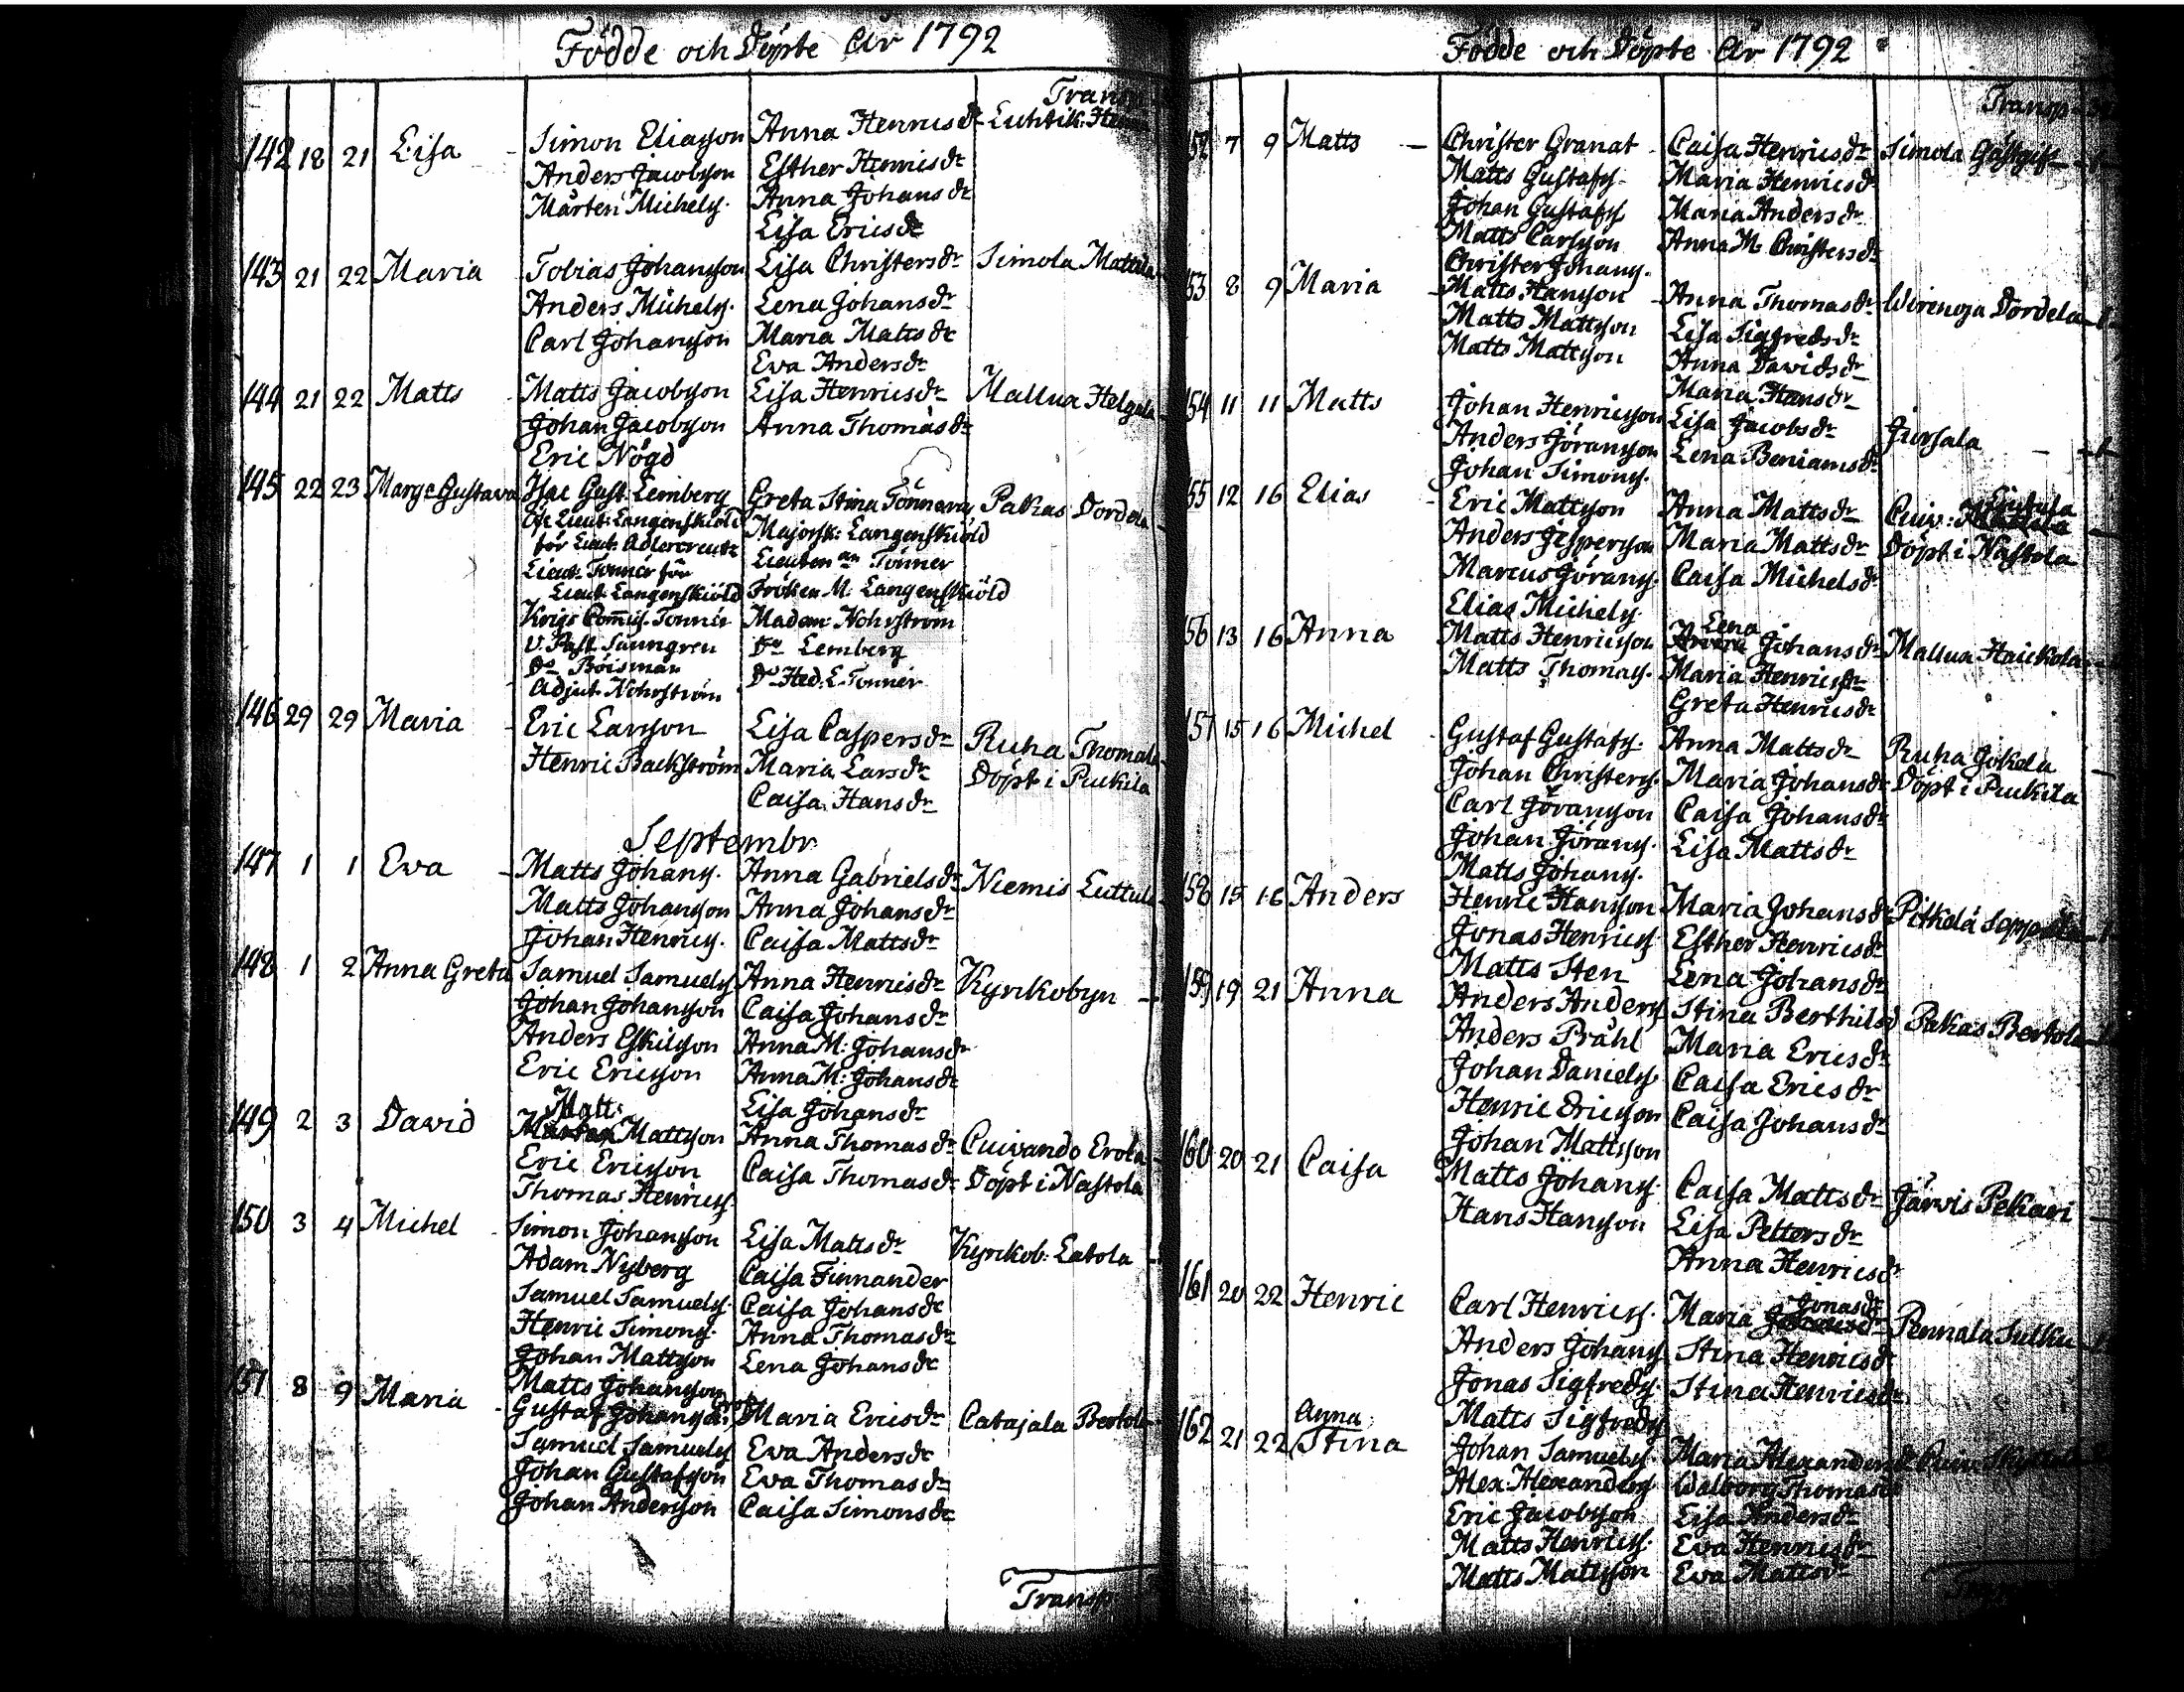 Födde och Döpte År 1792
Transp
142 18 21 Lisa - Simon Eliasson Anna Henricsdr Luhtik:
Anders Jacobsson Esther Henricsdr
Mårten Michels. Anna Johansdr
Lisa Ericsdr
143 21 22 Maria Tobias Johansson Lisa Christersdr Simola Mattila
Anders Michels. Lena Johansdr
Carl Johansson Maria Mattsdr
Eva Andersdr
144 21 22 Matts Matts Jacobsson Lisa Henricsdr Mallua Helgela
Johan Jacobsson Anna Thomasdr
Eric Nögd
145 22 23 Marg: Gustava Isac Gust. Lemberg Greta Stina Pakas Dordela
Öf: Lieut: Langenskiöld Majorsk: Langenskiöld
för Lieut: Adlercreutz Lieutenan Tönner
Lieut: Tönner för
Lieut: Langenskiöld Fröken M. Langenskiöld
Krigs Com̄is. Tonnér Madam Nohrström
V. Past. Saungren Do Lemberg
Do Böisman Do Hed: L. Tonnér
Adjut. Nohrström
146 29 29 Maria - Eric Larsson Lisa Caspersdr Ruha Thomala
Henric Backström Maria Larsdr Döpt i Puckila
Caisa Hansdr
Septembr
147 1 1 Eva - Matts Johans. Anna Gabrielsdr Niemis Luttula
Matts Johansson Anna Johansdr
Johan Henrics. Caisa Mattsdr
148 1 2 Anna Greta Samuel Samuels Anna Henricsdr Kyrkobyn -
Johan Johansson Caisa Johansdr
Anders Eskilsson Anna M: Johansdr
Eric Ericsson Anna M: Johansdr
Matts Lisa Johansdr
149 2 3 David Mattsson Anna Thomasdr Cuivando Erola
Eric Ericsson Caisa Thomasdr Döpt i Nastola
Thomas Henrics.
150 3 4 Michel - Simon Johansson Lisa Mattsdr Kyrkob: Latola
Adam Nyberg Caisa Finnander
Samuel Samuels. Caisa Johansdr
Henric Simons. Anna Thomasdr
Johan Mattsson Lena Johansdr
Matts Johansson
151 8 9 Maria - Gustaf Johansson Maria Ericsdr Catajala Bertola
Samuel Samuels Eva Andersdr
Johan Gustafsson Eva Thomasdr
Johan Andersson Caisa Simonsdr
Transp
Födde och Döpte År 1792
Transp
152 7 9 Matts - Christer Granat Caisa Henricsdr Simola Gästgif
Matts Gustafs. Maria Henricsdr
Johan Gustafs Maria Andersdr
Matts Carlsson Anna M. Christersdr
Christer Johans.
153 8 9 Maria - Matts Hansson Anna Thomasdr Wirenoja Dordela
Matts Mattsson Lisa Sigfredsdr
Matts Mattsson Anna Davidsdr
Maria Hansdr
154 11 11 Matts Johan Henricsson Lisa Jacobsdr Jursala
Anders Göransson Lena Beniamsdr
Johan Simons.
155 12 16 Elias - Eric Mattsson Anna Mattsdr Cuiv:
Anders Jespersson Maria Mattsdr Döpt i Nastola
Marcus Görans. Caisa Michelsdr
Elias Michels.
Lena
156 13 16 Anna Matts Henricsson Johansdr Mallua Haickola
Matts Thomas. Maria Henricsdr
Greta Henricsdr
157 15 16 Michel Gustaf Gustafs. Anna Mattsdr Ruha Jokela
Johan Christers. Maria Johansdr Döpt i Puckila
Carl Göransson Caisa Johansdr
Johan Görans. Lisa Mattsdr
Matts Johans.
158 15 16 Anders Henric Hansson Maria Johansdr Pitkola
Jonas Henrics Esther Henricsdr
Matts Sten Lena Johansdr
159 19 21 Anna Anders Anders Stina Berthilsd Pakas Bertola
Anders Pråhl Maria Ericsdr
Johan Daniels Caisa Ericsdr
Henric Ericsson Caisa Johansdr
Johan Mattsson
160 20 21 Caisa Matts Johans. Caisa Mattsdr Järvis Pekari
Hans Hansson Lisa Pettersdr
Anna Henricsdr
Jonasdr
161 20 22 Henric Carl Henrics. Maria Pennala Sulku
Anders Johans Stina Henricsdr
Jonas Sigfreds. Stina Henricsdr
Matts Sigfreds
Anna
162 21 22 Stina Johan Samuels. Maria Alexandersdr
Alex: Alexanders Walborg Thomasdr
Eric Jacobsson Lisa Andersdr
Matts Henrics. Eva Henricsdr
Matts Mattsson Eva Mattsdr